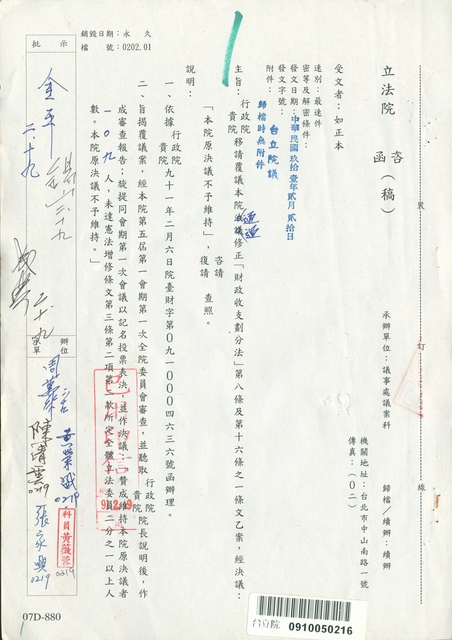 銷毀日期：永久
檔號：0202.01
批示
立法院 咨 函（稿）
承辦單位：議事處議案科
歸檔／續辦：續辦
機關地址：台北市中山南路一號
傳真：（０２）
受文者：如正本
速別：最速件
密等及解密條件：
發文日期：中華民國玖拾壹年貳月貳拾日
發文字號：台立院議
附件：歸檔時無附件
主旨：行政院 貴院 移請覆議本院通過修正「財政收支劃分法」第八條及第十六條之一條文乙案，經決議：
「本院原決議不予維持」，咨請 復請 查照。
說明：
一、依據 行政院 貴院 九十一年二月六日院臺財字第０九一０００四六三六號函辦理。
二、旨揭覆議案，經本院第五屆第一會期第一次全院委員會審查，並聽取 行政院 貴院 院長說明後，作
成審查報告；旋提同會期第一次會議以記名投票表決，並作決議：「贊成維持本院原決議者
一０九人，未達憲法增修條文第三條第二項第二款所定全體立法委員二分之一以上人
數。本院原決議不予維持。」
裝
訂
線
金平
二.十九
二.十九
辦位
黃榮盛
0219
科員黃薇蓉
0219
0219
張
0219
91.2.19
07D-880
台立院 0910050216